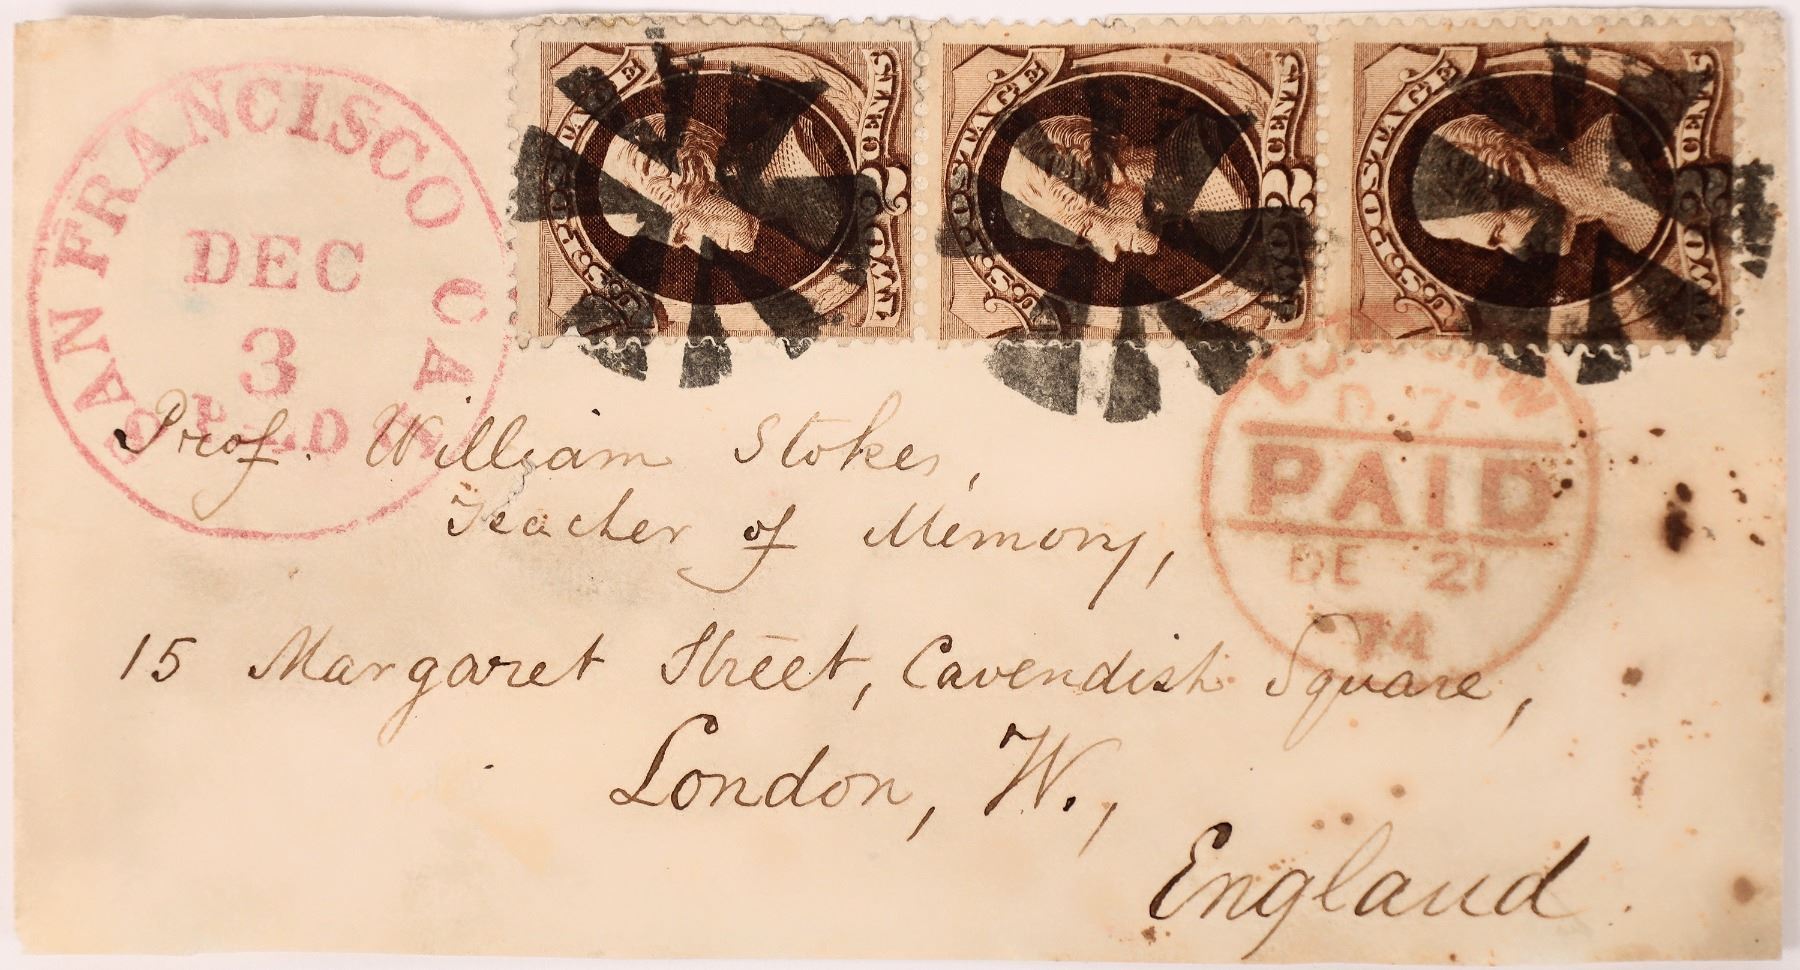 SAN FRANCISCO CA
DEC
3
U.S. POSTAGE
TWO 2 CENTS
U.S. POSTAGE
TWO 2 CENTS
U.S. POSTAGE
TWO 2 CENTS
PAID
DE 21
74
Prof. William Stokes,
Teacher of Memory,
15 Margaret Street, Cavendish Square,
London, W.,
England.